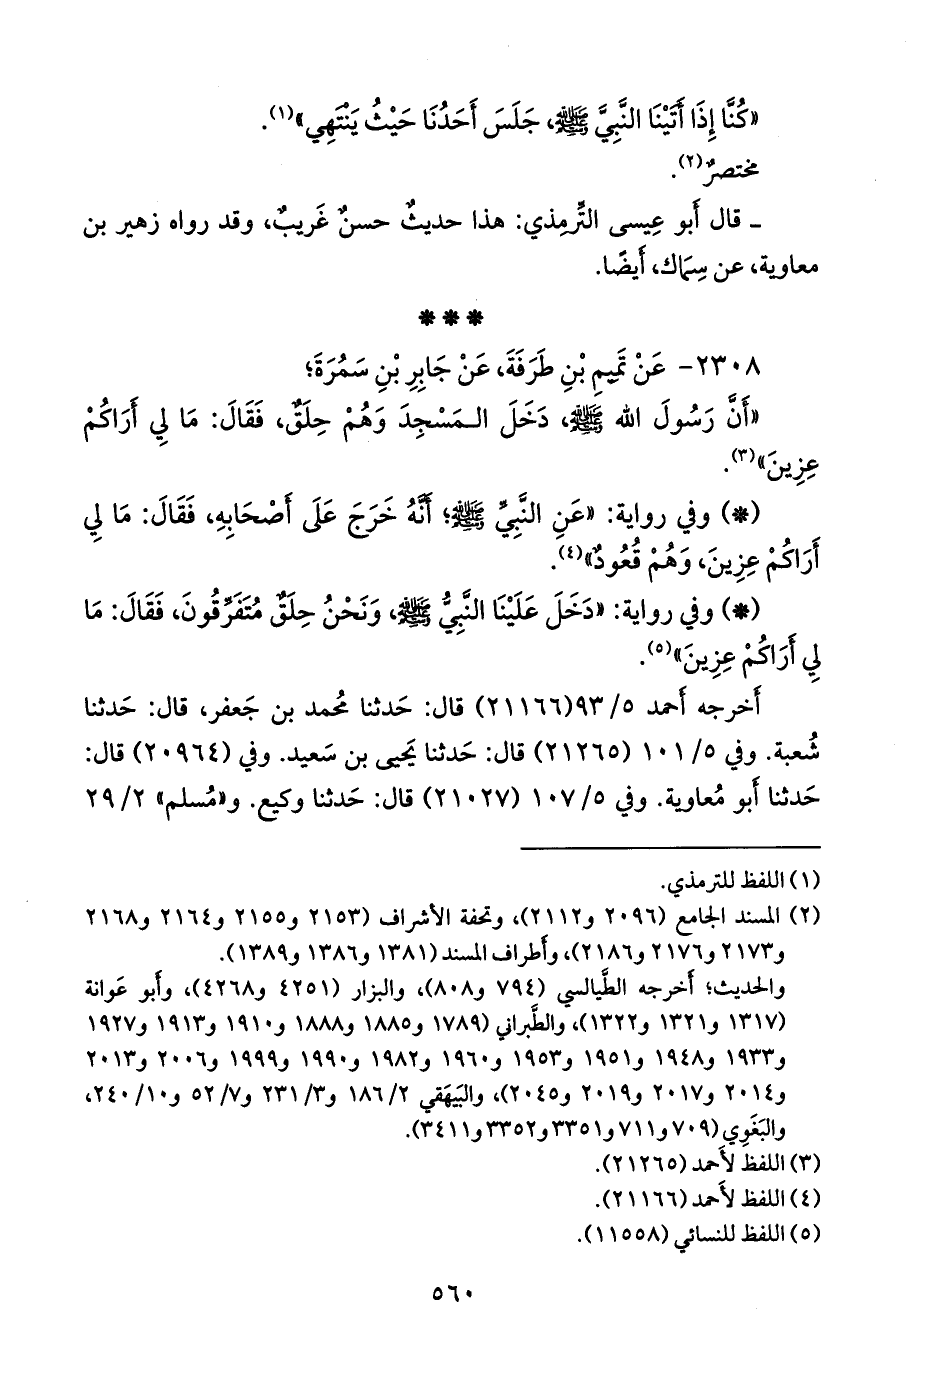 «كُنَّا إِذَا أَتَيْنَا النَّبِيَّ ﷺ، جَلَسَ أَحَدُنَا حَيْثُ يَنْتَهِي»(١).
مختصرٌ(٢).
ـ قال أَبو عِيسى التِّرمِذي: هذا حديثٌ حسنٌ غَريبٌ، وقد رواه زهير بن
معاوية، عن سِمَاك، أَيضًا.
* * *
٢٣٠٨- عَنْ تَمِيمِ بْنِ طَرَفَةَ، عَنْ جَابِرِ بْنِ سَمُرَةَ؛
«أَنَّ رَسُولَ الله ﷺ، دَخَلَ الـمَسْجِدَ وَهُمْ حِلَقٌ، فَقَالَ: مَا لِي أَرَاكُمْ
عِزِينَ»(٣).
(*) وفي رواية: «عَنِ النَّبِيِّ ﷺ؛ أَنَّهُ خَرَجَ عَلَى أَصْحَابِهِ، فَقَالَ: مَا لِي
أَرَاكُمْ عِزِينَ، وَهُمْ قُعُودٌ»(٤).
(*) وفي رواية: «دَخَلَ عَلَيْنَا النَّبِيُّ ﷺ، وَنَحْنُ حِلَقٌ مُتَفَرِّقُونَ، فَقَالَ: مَا
لِي أَرَاكُمْ عِزِينَ»(٥).
أَخرجه أَحمد ٥/ ٩٣(٢١١٦٦) قال: حَدثنا مُحمد بن جَعفر، قال: حَدثنا
شُعبة. وفي ٥/ ١٠١ (٢١٢٦٥) قال: حَدثنا يَحيى بن سَعيد. وفي (٢٠٩٦٤) قال:
حَدثنا أَبو مُعاوية. وفي ٥/ ١٠٧ (٢١٠٢٧) قال: حَدثنا وكيع. و«مُسلم» ٢/ ٢٩
(١) اللفظ للترمذي.
(٢) المسند الجامع (٢٠٩٦ و٢١١٢)، وتحفة الأشراف (٢١٥٣ و٢١٥٥ و٢١٦٤ و٢١٦٨
و٢١٧٣ و٢١٧٦ و٢١٨٦)، وأَطراف المسند (١٣٨١ و١٣٨٦ و١٣٨٩).
والحديث؛ أَخرجه الطَّيالسي (٧٩٤ و٨٠٨)، والبزار (٤٢٥١ و٤٢٦٨)، وأَبو عَوانة
(١٣١٧ و١٣٢١ و١٣٢٢)، والطَّبراني (١٧٨٩ و١٨٨٥ و١٨٨٨ و١٩١٠ و١٩١٣ و١٩٢٧
و١٩٣٣ و١٩٤٨ و١٩٥١ و١٩٥٣ و١٩٦٠ و١٩٨٢ و١٩٩٠ و١٩٩٩ و٢٠٠٦ و٢٠١٣
و٢٠١٤ و٢٠١٧ و٢٠١٩ و٢٠٤٥)، والبَيهَقي ٢/ ١٨٦ و٣/ ٢٣١ و٧/ ٥٢ و١٠/ ٢٤٠،
والبَغَوِي (٧٠٩ و٧١١ و٣٣٥١ و٣٣٥٢ و٣٤١١).
(٣) اللفظ لأَحمد (٢١٢٦٥).
(٤) اللفظ لأَحمد (٢١١٦٦).
(٥) اللفظ للنسائي (١١٥٥٨).
٥٦٠